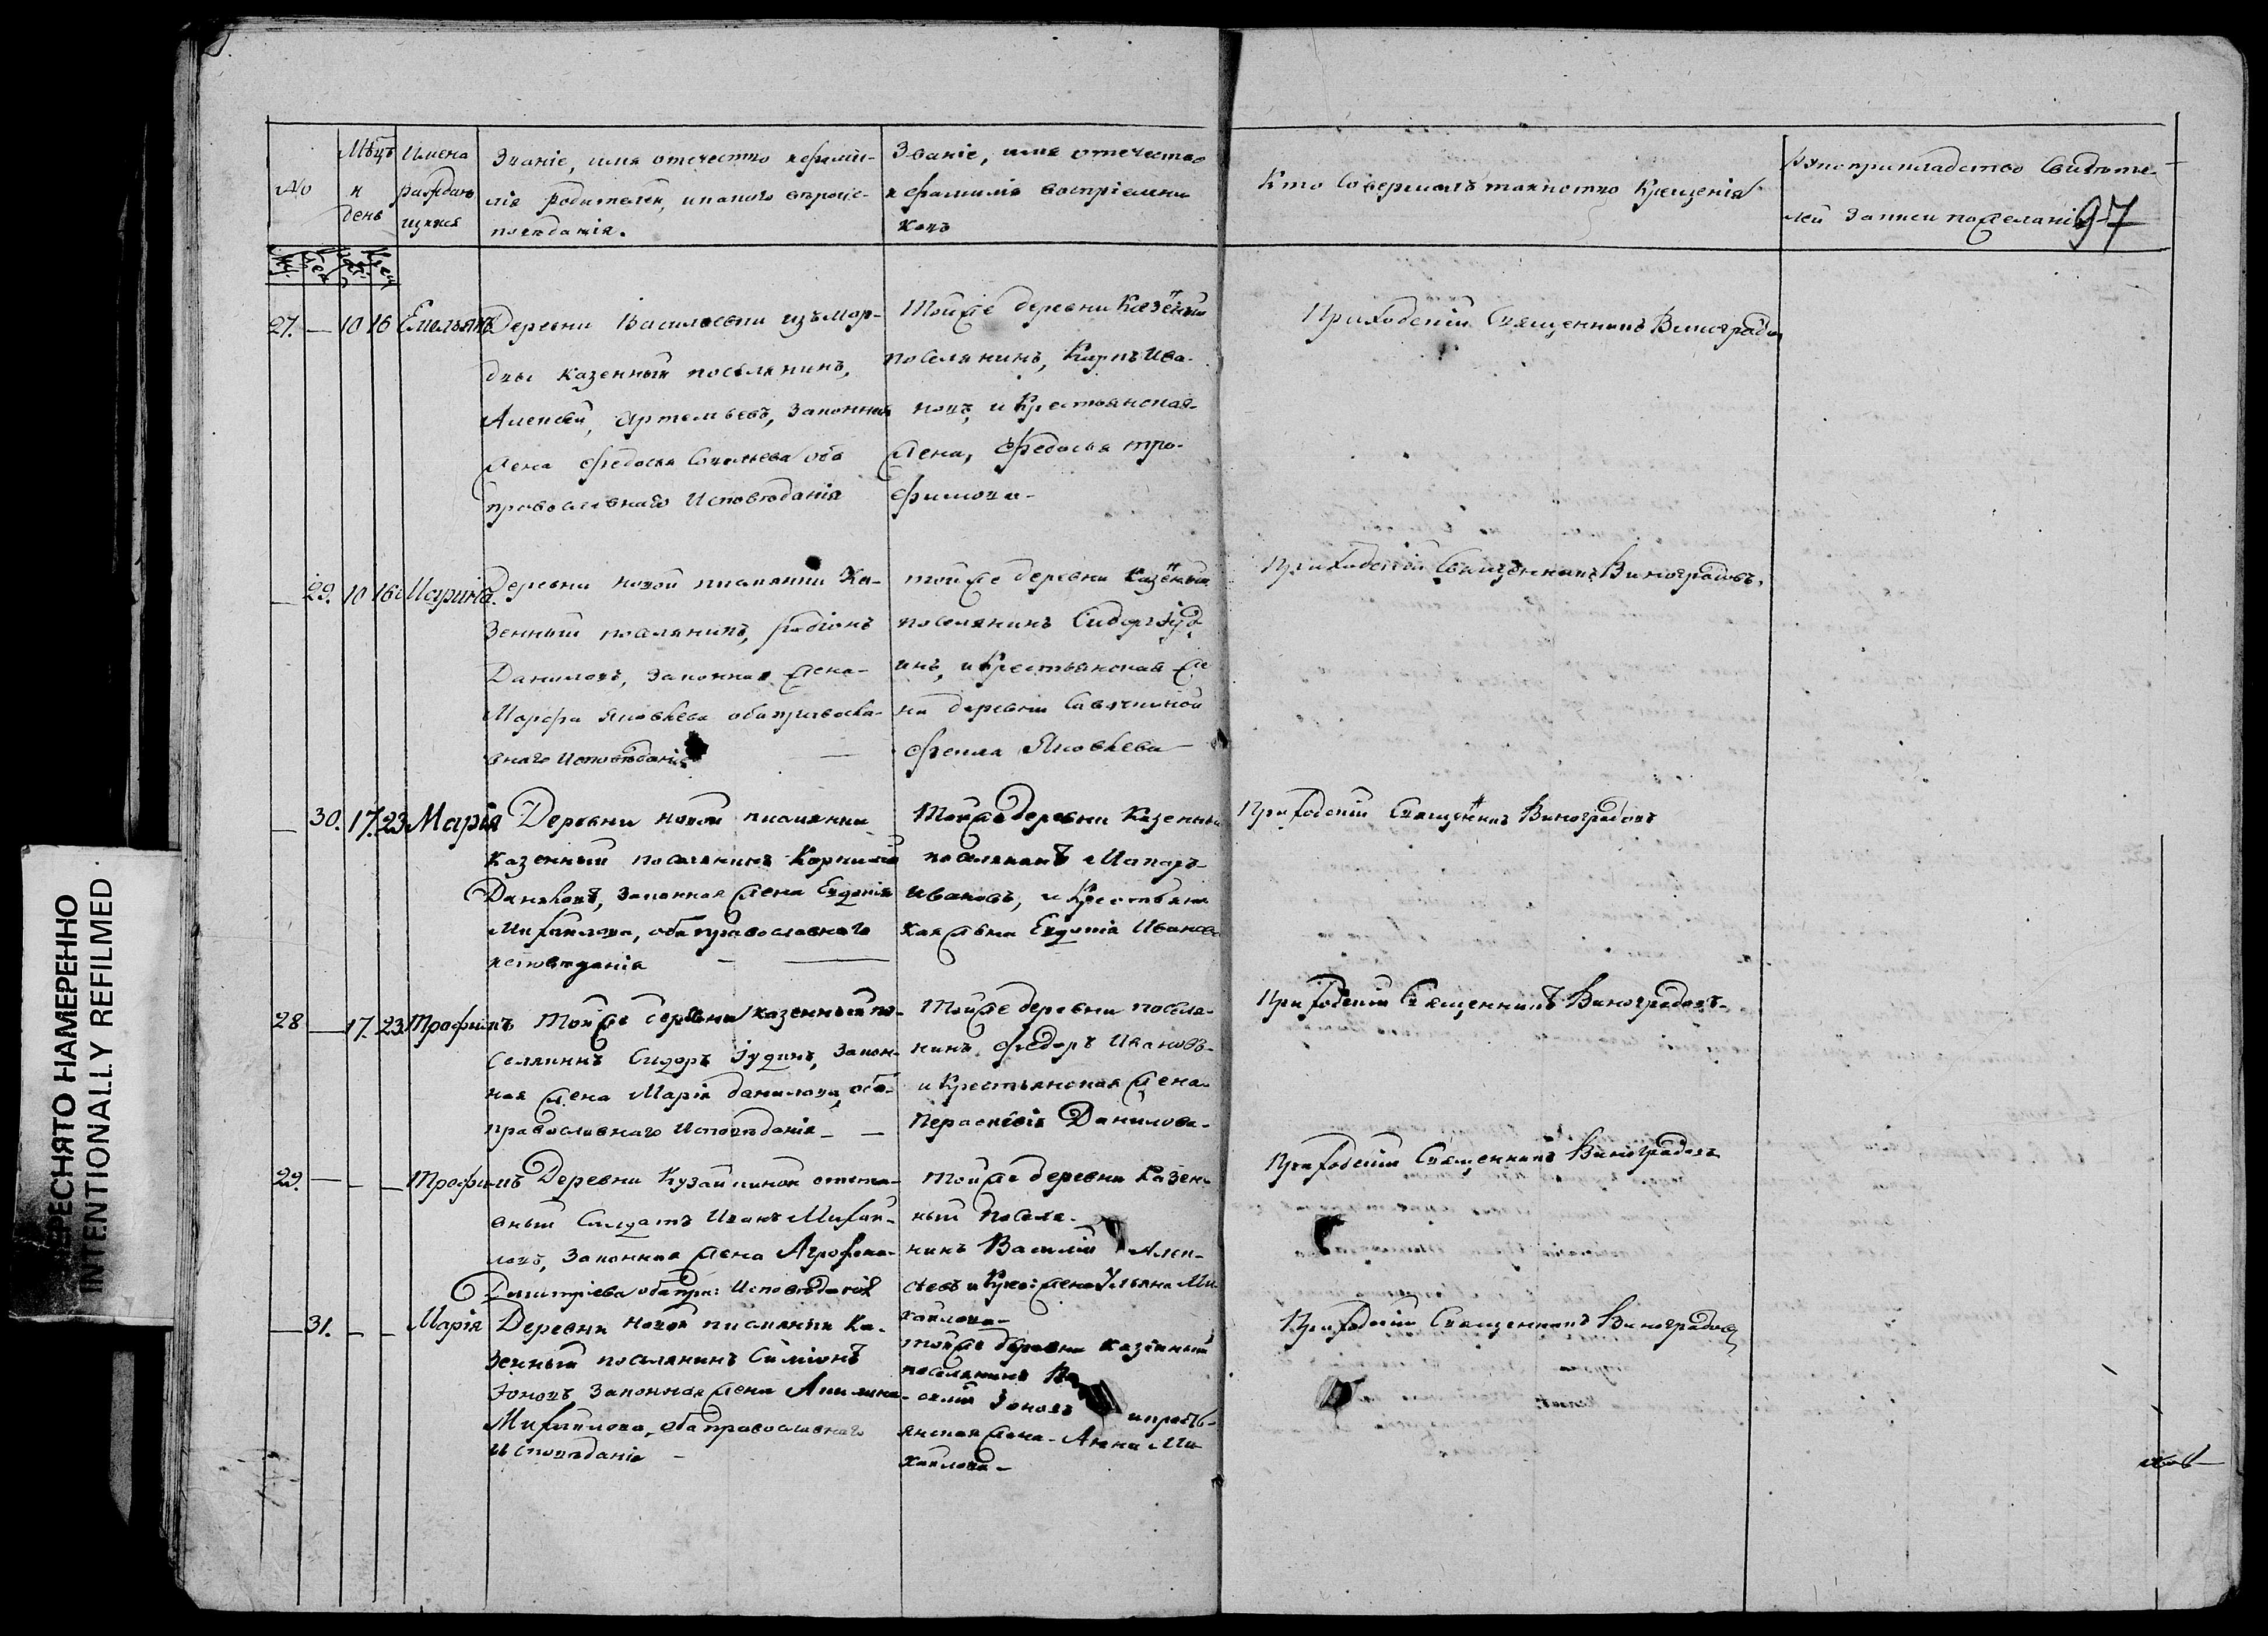 ПЕРЕСНЯТО НАМЕРЕННО
INTENTIONALLY REFILMED
№
Мѣцъ
и
день
Имена
раждаю
щихся
Званіе, имя отечество и фами-
лія родителей, и какого вѣроис-
повѣданія.
Званіе, имя отечество
и фамилія воспріемни
ковъ
Кто Совершалъ таинство Крещенія
Рукоприкладство Свидѣте-
лей записи по желанію
97
27. — 10 16 Емельянъ
Деревни Васильевки изъ мор-
двы казенный поселянинъ,
Алексѣй, Артемьевъ, законная
жена Федосья Савельева оба
православнаго Исповѣданія
Тойже деревни Казенный
поселянинъ, Карпъ Ива-
новъ, и Крестьянская
жена, Федосья Тро-
фимова-
Приходскій Священникъ Виноградов
— 29. 10 16 Марина.
Деревни новой писмянки Ка-
зенный поселянинъ, Родіонъ
Даниловъ, законная жена-
Марфа Яковлева оба правосла-
внаго Исповѣданія
тойже деревни казенный
поселянинъ Сидоръ Іуд
инъ, и Крестьянская же
на деревни
Фекла Яковлева
Приходскій Священникъ Виноградовъ.
— 30. 17. 23 Марія
Деревни новой писмянки
Казенный поселянинъ Корнилій
Даниловъ, законная жена Евдокія
Михайлова, оба православнаго
исповѣданія
Тойже деревни Казенный
поселянинъ Макаръ
Ивановъ, и Крестьянс
кая жена Евдокія Иванова
Приходскій Священникъ Виноградовъ
28 — 17. 23 Трофимъ
Тойже деревни казенный по-
селянинъ Сидоръ Іудинъ, закон-
ная жена Марія Данилова, оба-
православнаго Исповѣданія
Тойже деревни поселя-
нинъ Федоръ Ивановъ-
и Крестьянская жена
Параскевія Данилова-
Приходскій Священникъ Виноградовъ-
29. — – – Трофимъ
Деревни Кузайкиной отста-
вный Солдатъ Иванъ Михай-
ловъ, законная жена Агрофена-
Дмитріева оба пра: Исповѣданія
Тойже деревни Казен-
ный поселя-
нинъ Василій Алек-
сѣевъ и Крес: жена Ульяна Ми
хайлова-
Приходскій Священникъ Виноградовъ
— 31. – – Марія
Деревни новой писмянки Ка-
зенный поселянинъ Симіонъ
Іоновъ законная жена Акилина
Михайлова, оба православнаго
Исповѣданія -
тойже деревни казенный
поселянинъ Ва
силій Іоновъ и кресть-
янская жена- Анна Ми
хайлова-
Приходскій Священникъ Виноградовъ